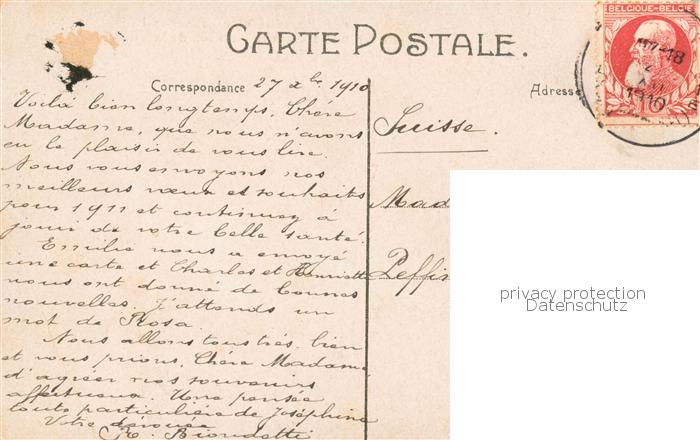 BELGIQUE-BELGIE
CARTE POSTALE.
Correspondance
27 Xbre 1910
Voilà bien longtemps, Chère
Madame, que nous n'avons
eu le plaisir de vous lire.
Nous vous envoyons nos
meilleurs vœux et souhaits
pour 1911 et continuez à
jouir de votre belle santé.
Emilie nous a envoyé
une carte et Charles et Henriette
nous ont donné de bonnes
nouvelles. J'attends un
mot de Rosa.
Nous allons tous très bien
et vous prions, Chère Madame
d'agréer nos souvenirs
affectueux. Une pensée
toute particulière de Joséphine
Votre dévouée
Adresse
Suisse.
Mad
Peffi
1910
10
privacy protection
Datenschutz